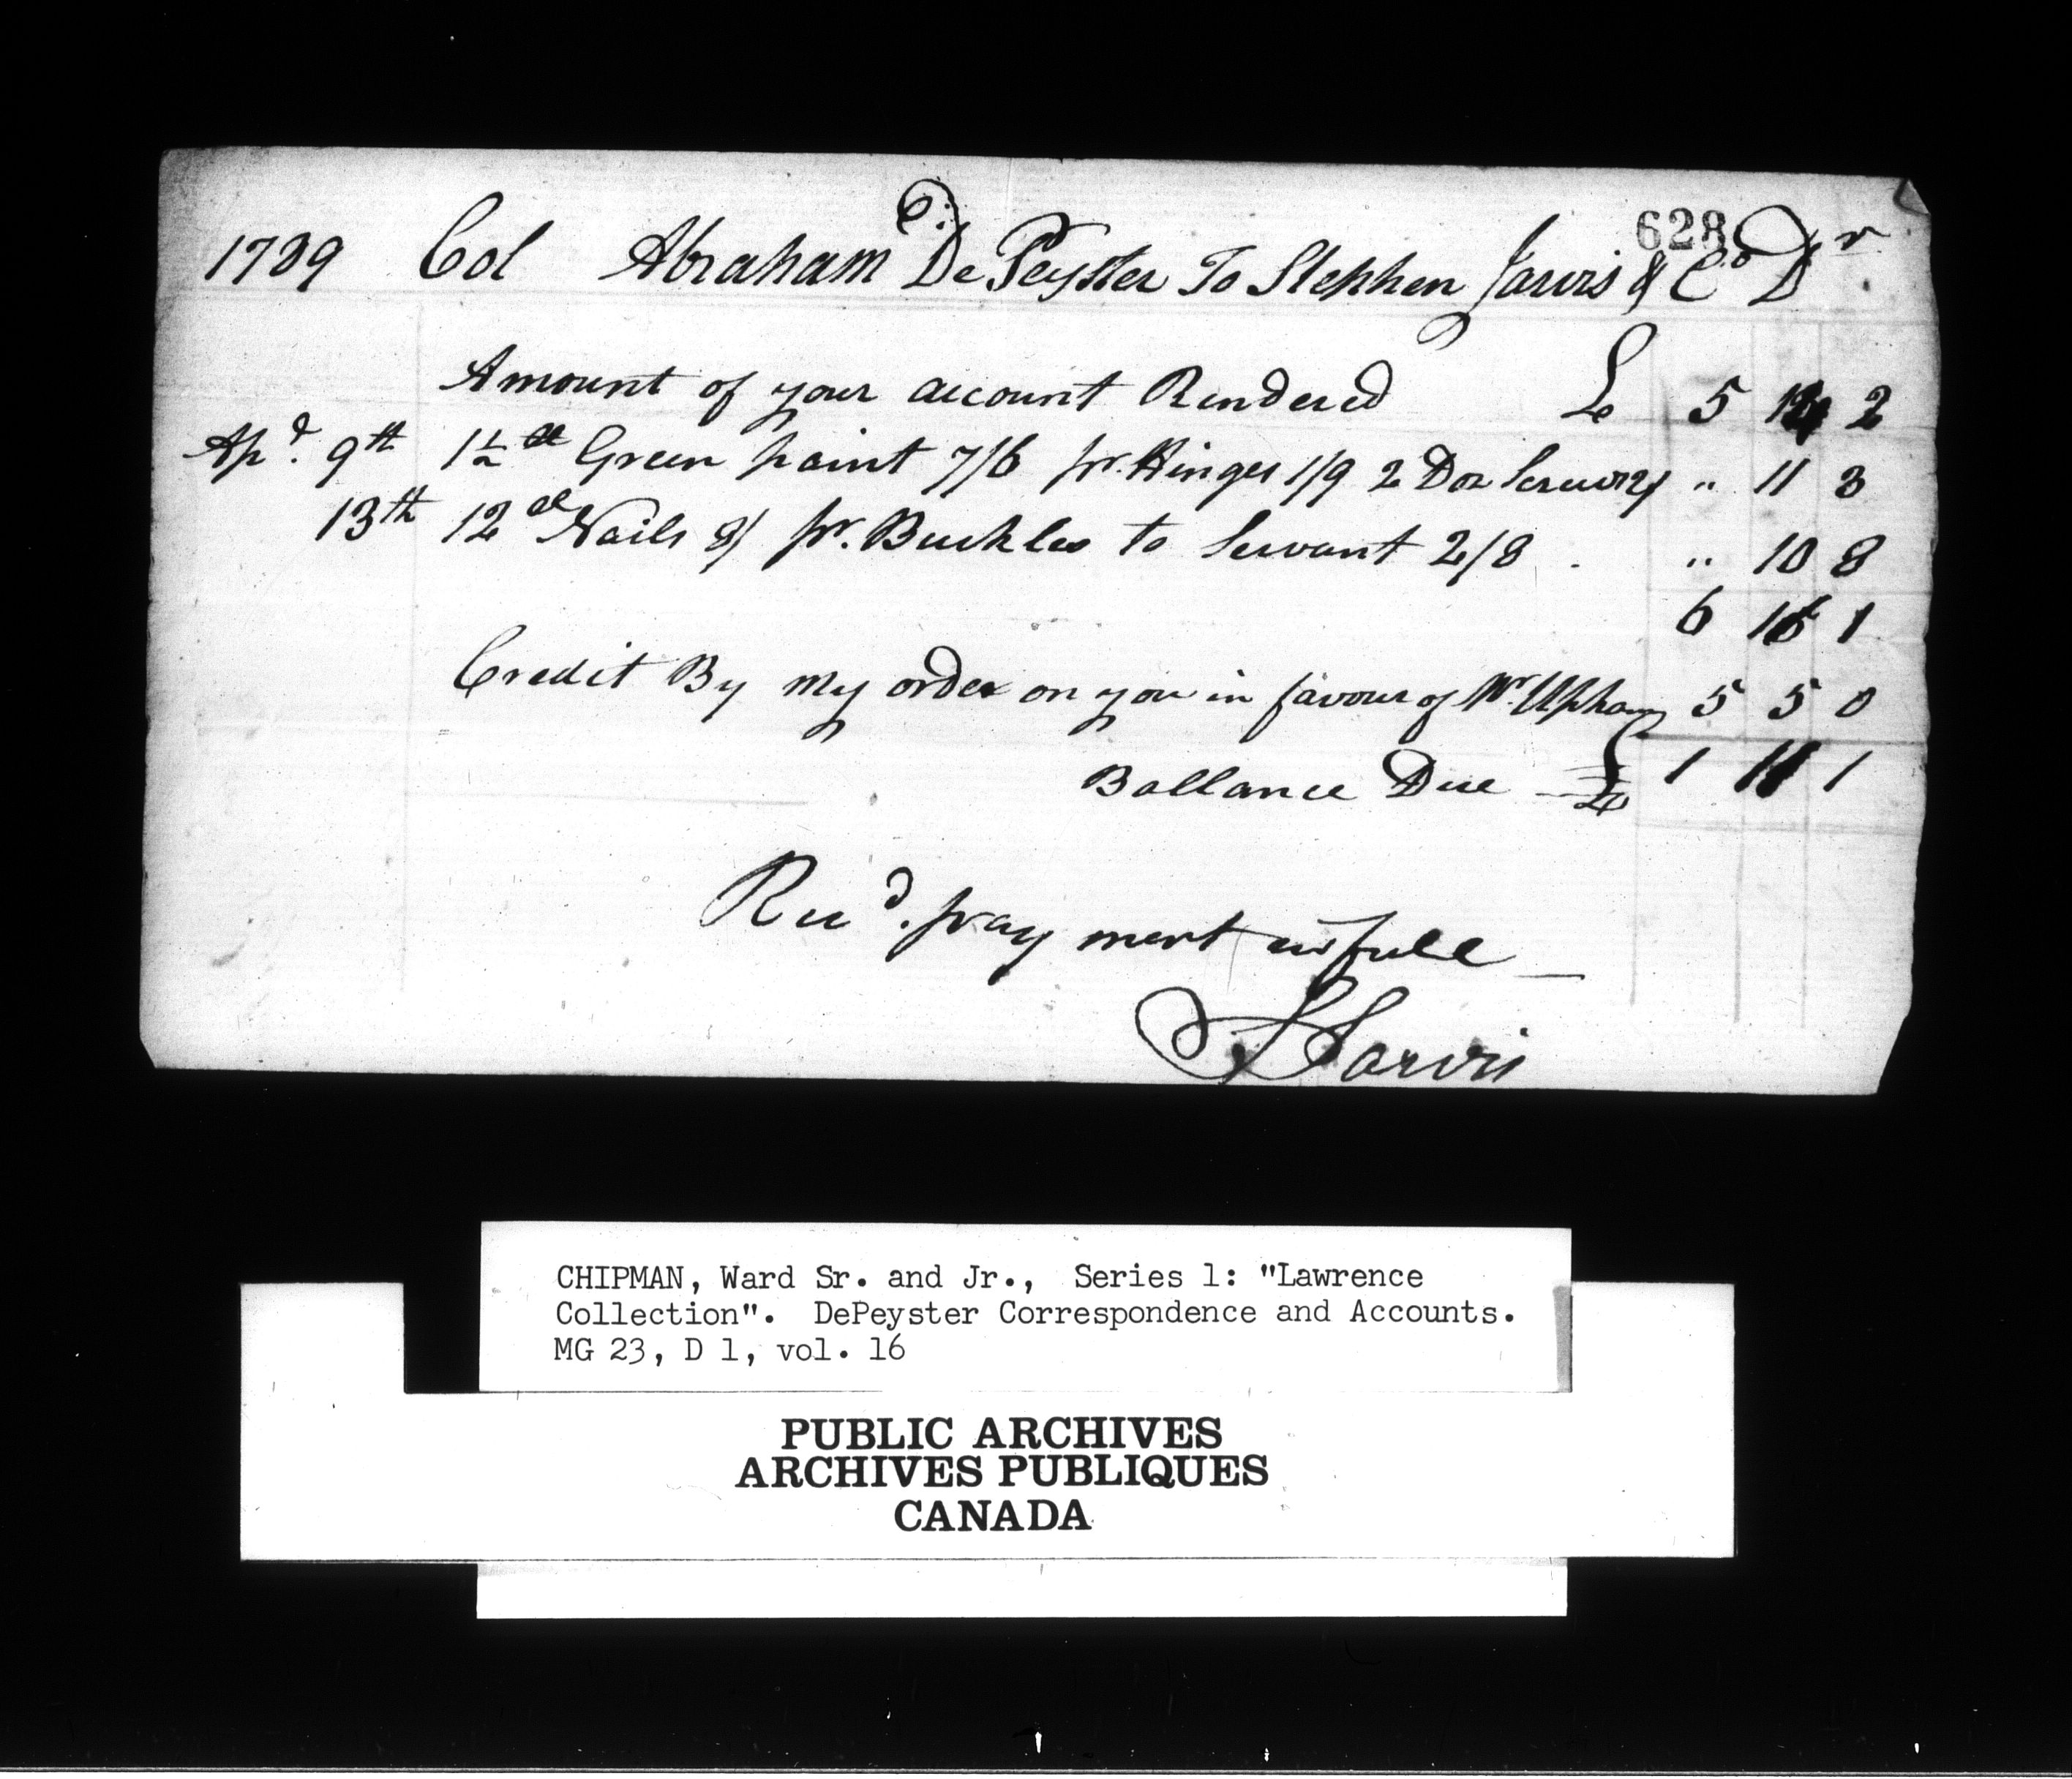 628
1789 Col Abraham De Peyster To Stephen Jarvis & Co Dr
Amount of your account Rendered £ 5 14 2
Apl. 9th 1½ lb Green paint 7/6 pr. Hinges 1/9 2 Doz Screws 2/ " 11 3
13th 12 lb Nails 8/ pr. Buckles to Servant 2/8 . " 10 8
6 16 1
Credit By my order on you in favour of Mr. Upham 5 5 0
Ballance Due £ 1 11 1
Recd. pay ment in full
S Jarvis
CHIPMAN, Ward Sr. and Jr., Series 1: "Lawrence
Collection". DePeyster Correspondence and Accounts.
MG 23, D 1, vol. 16
PUBLIC ARCHIVES
ARCHIVES PUBLIQUES
CANADA